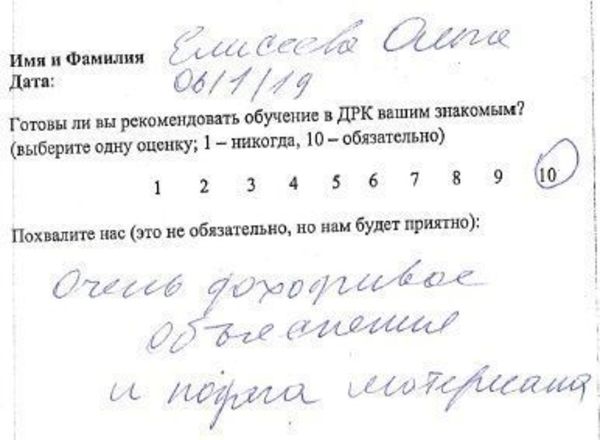 Имя и Фамилия Елисеева Ольга
Дата: 06/1/19
Готовы ли вы рекомендовать обучение в ДРК вашим знакомым?
(выберите одну оценку; 1 – никогда, 10 – обязательно)
1 2 3 4 5 6 7 8 9 10
Похвалите нас (это не обязательно, но нам будет приятно):
Очень доходчивое
объяснение
и подача материала